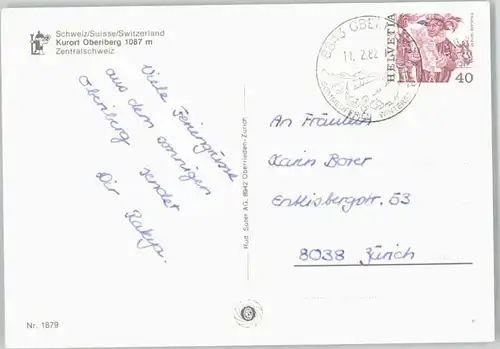 Schweiz/Suisse/Switzerland
Kurort Oberiberg 1087 m
Zentralschweiz
Viele Feriengrüsse
aus dem sonnigen
Oberiberg sendet
Dir
Rud. Suter AG, 8942 Oberrieden-Zürich
11. 2. 82
HELVETIA
40
An Fräulein
Karin Borer
Entlisbergstr. 53
8038 Zürich
Nr. 1879